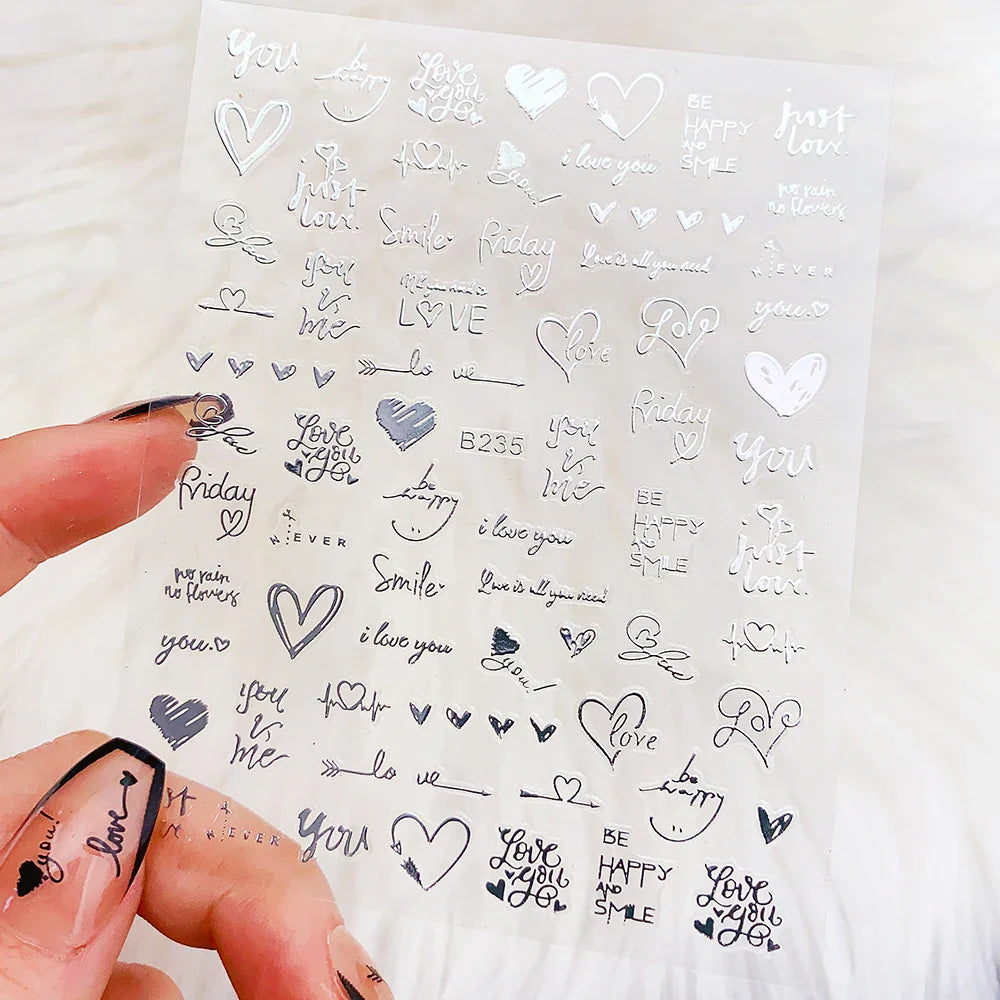 you
be
happy
Love
you
BE
HAPPY
AND
SMILE
just
love.
just
love.
you!
i love you
no rain
no flowers
Smile
friday
Love is all you need
EVER
you
&
me
LOVE
love
Love
you.
lo ve
friday
Love
you
B235
you
&
me
you
friday
be
happy
i love you
BE
HAPPY
AND
SMILE
just
love.
EVER
no rain
no flowers
Smile
Love is all you need
you.
i love you
you!
you
&
me
love
Love
lo ve
be
happy
EVER
you
Love
you
BE
HAPPY
AND
SMILE
Love
you
you!
love